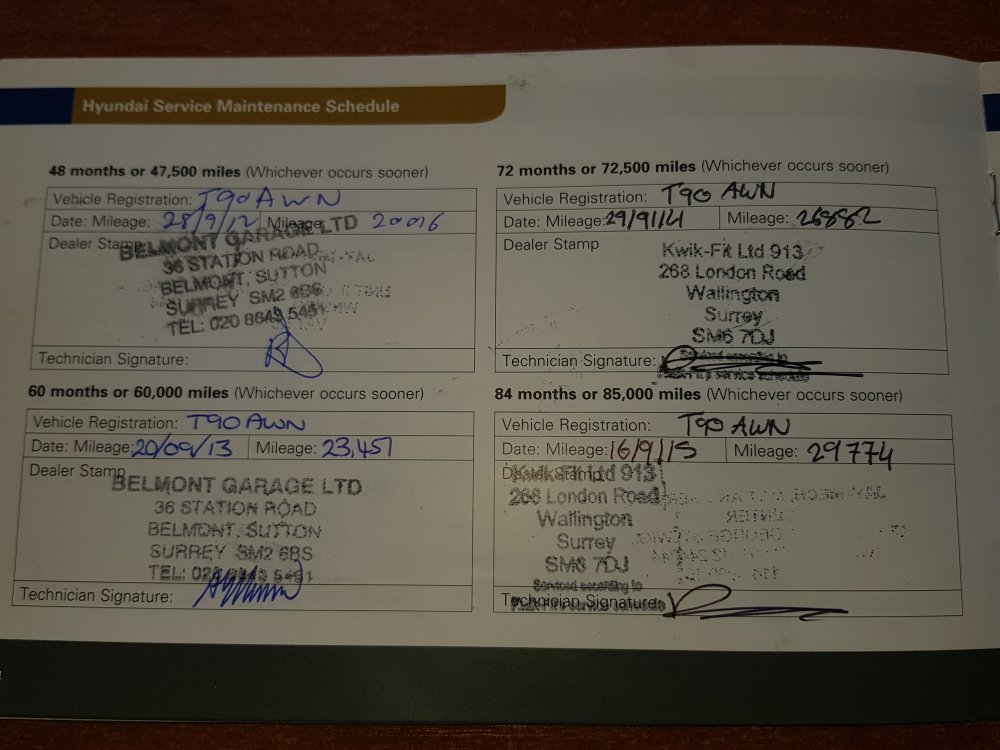 Hyundai Service Maintenance Schedule
48 months or 47,500 miles (Whichever occurs sooner)
Vehicle Registration: T90 AWN
Date: Mileage: 28/9/12 Mileage: 20016
Dealer Stamp
BELMONT GARAGE LTD
36 STATION ROAD
BELMONT, SUTTON
SURREY SM2 6BS
TEL: 020 8643 5491
Technician Signature:
60 months or 60,000 miles (Whichever occurs sooner)
Vehicle Registration: T90 AWN
Date: Mileage: 20/09/13 Mileage: 23,457
Dealer Stamp
BELMONT GARAGE LTD
36 STATION ROAD
BELMONT, SUTTON
SURREY SM2 6BS
TEL: 020 8643 5491
Technician Signature:
72 months or 72,500 miles (Whichever occurs sooner)
Vehicle Registration: T90 AWN
Date: Mileage: 29/9/14 Mileage: 26882
Dealer Stamp
Kwik-Fit Ltd 913
268 London Road
Wallington
Surrey
SM6 7DJ
Technician Signature:
Serviced according to
84 months or 85,000 miles (Whichever occurs sooner)
Vehicle Registration: T90 AWN
Date: Mileage: 16/9/15 Mileage: 29774
Dealer Stamp
Kwik-Fit Ltd 913
268 London Road
Wallington
Surrey
SM6 7DJ
Serviced according to
Technician Signature: